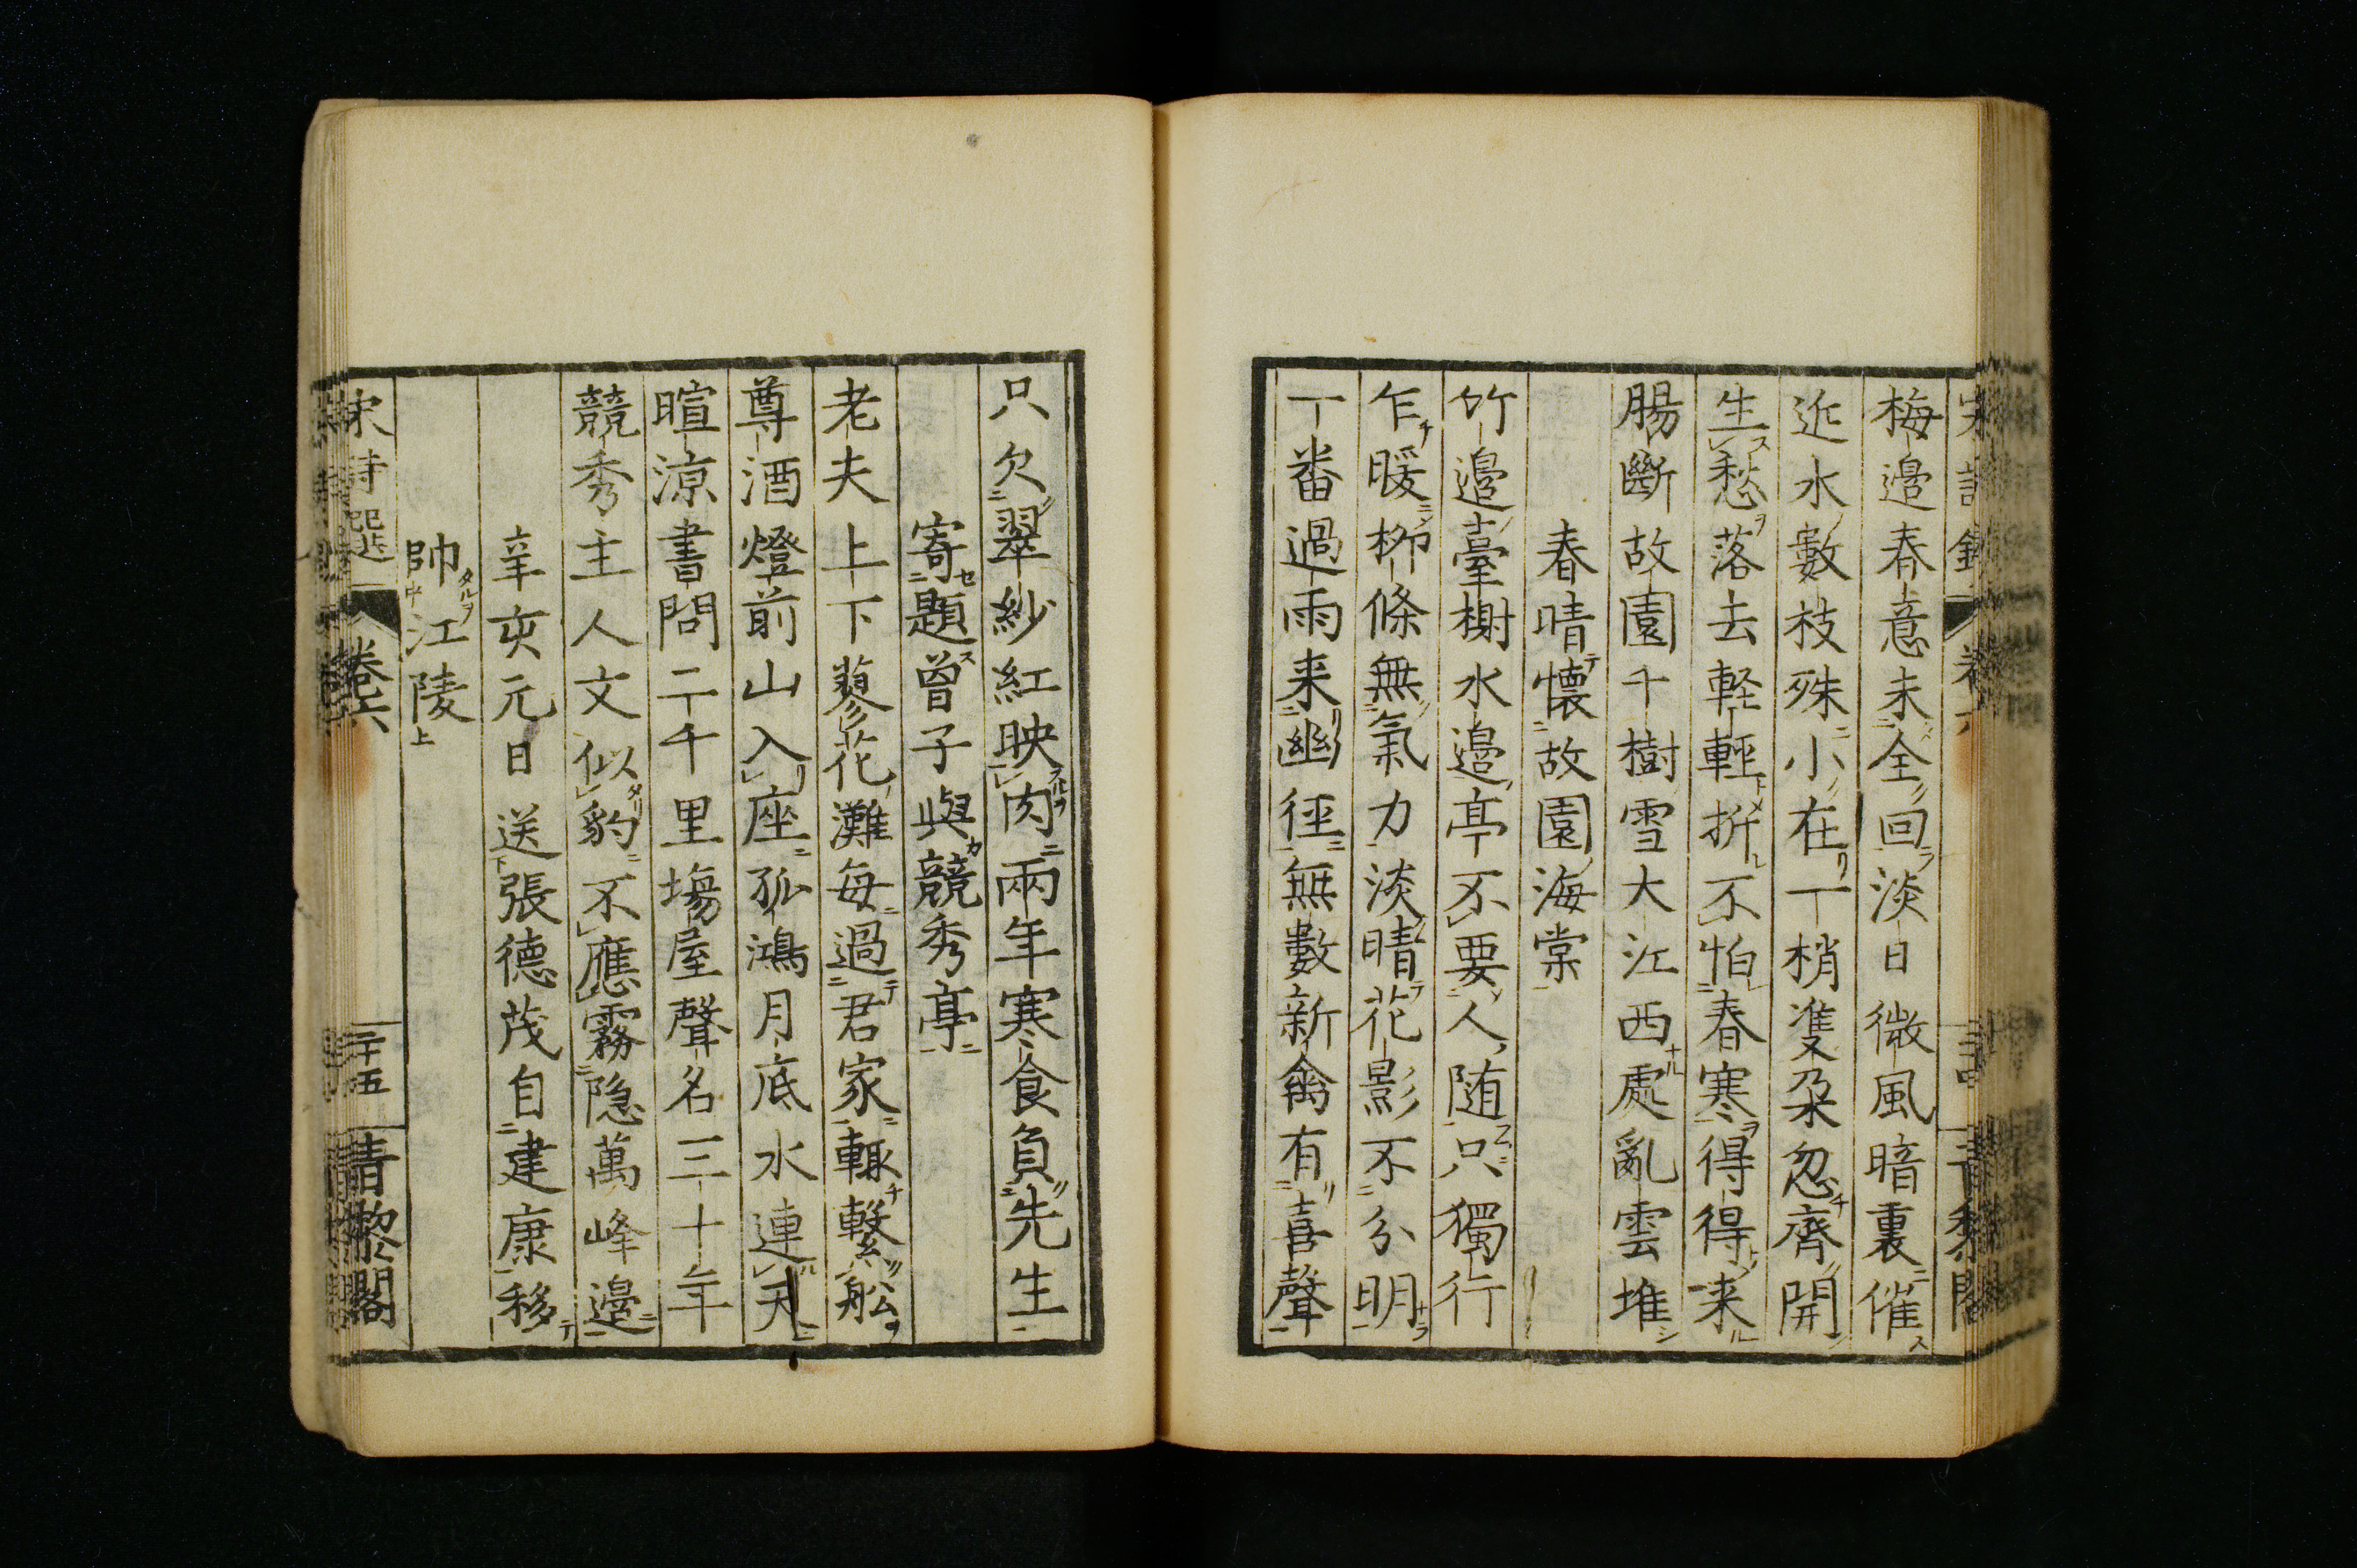 梅邉春意未全回淡日微風暗裏催
近水數枝殊小在一梢雙朶忽齊開
生愁落去軽輕折不怕春寒得得来
腸斷故園千樹雪大江西處亂雲堆
春晴懐故園海棠
竹邉臺榭水邉亭不要人随只獨行
乍暖柳條無氣力淡晴花影不分明
一番過雨来幽徑無數新禽有喜聲
只欠翠紗紅映肉兩年寒食負先生
寄題曽子與競秀亭
老夫上下蓼花灘毎過君家輙繫舩
尊酒燈前山入座孤鴻月底水連天
暄涼書問二千里塲屋聲名三十年
競秀主人文似豹不應霧隐萬峰邉
辛亥元日送張德茂自建康移
帥江陵
宋詩選 卷六 二十五 青黎閣